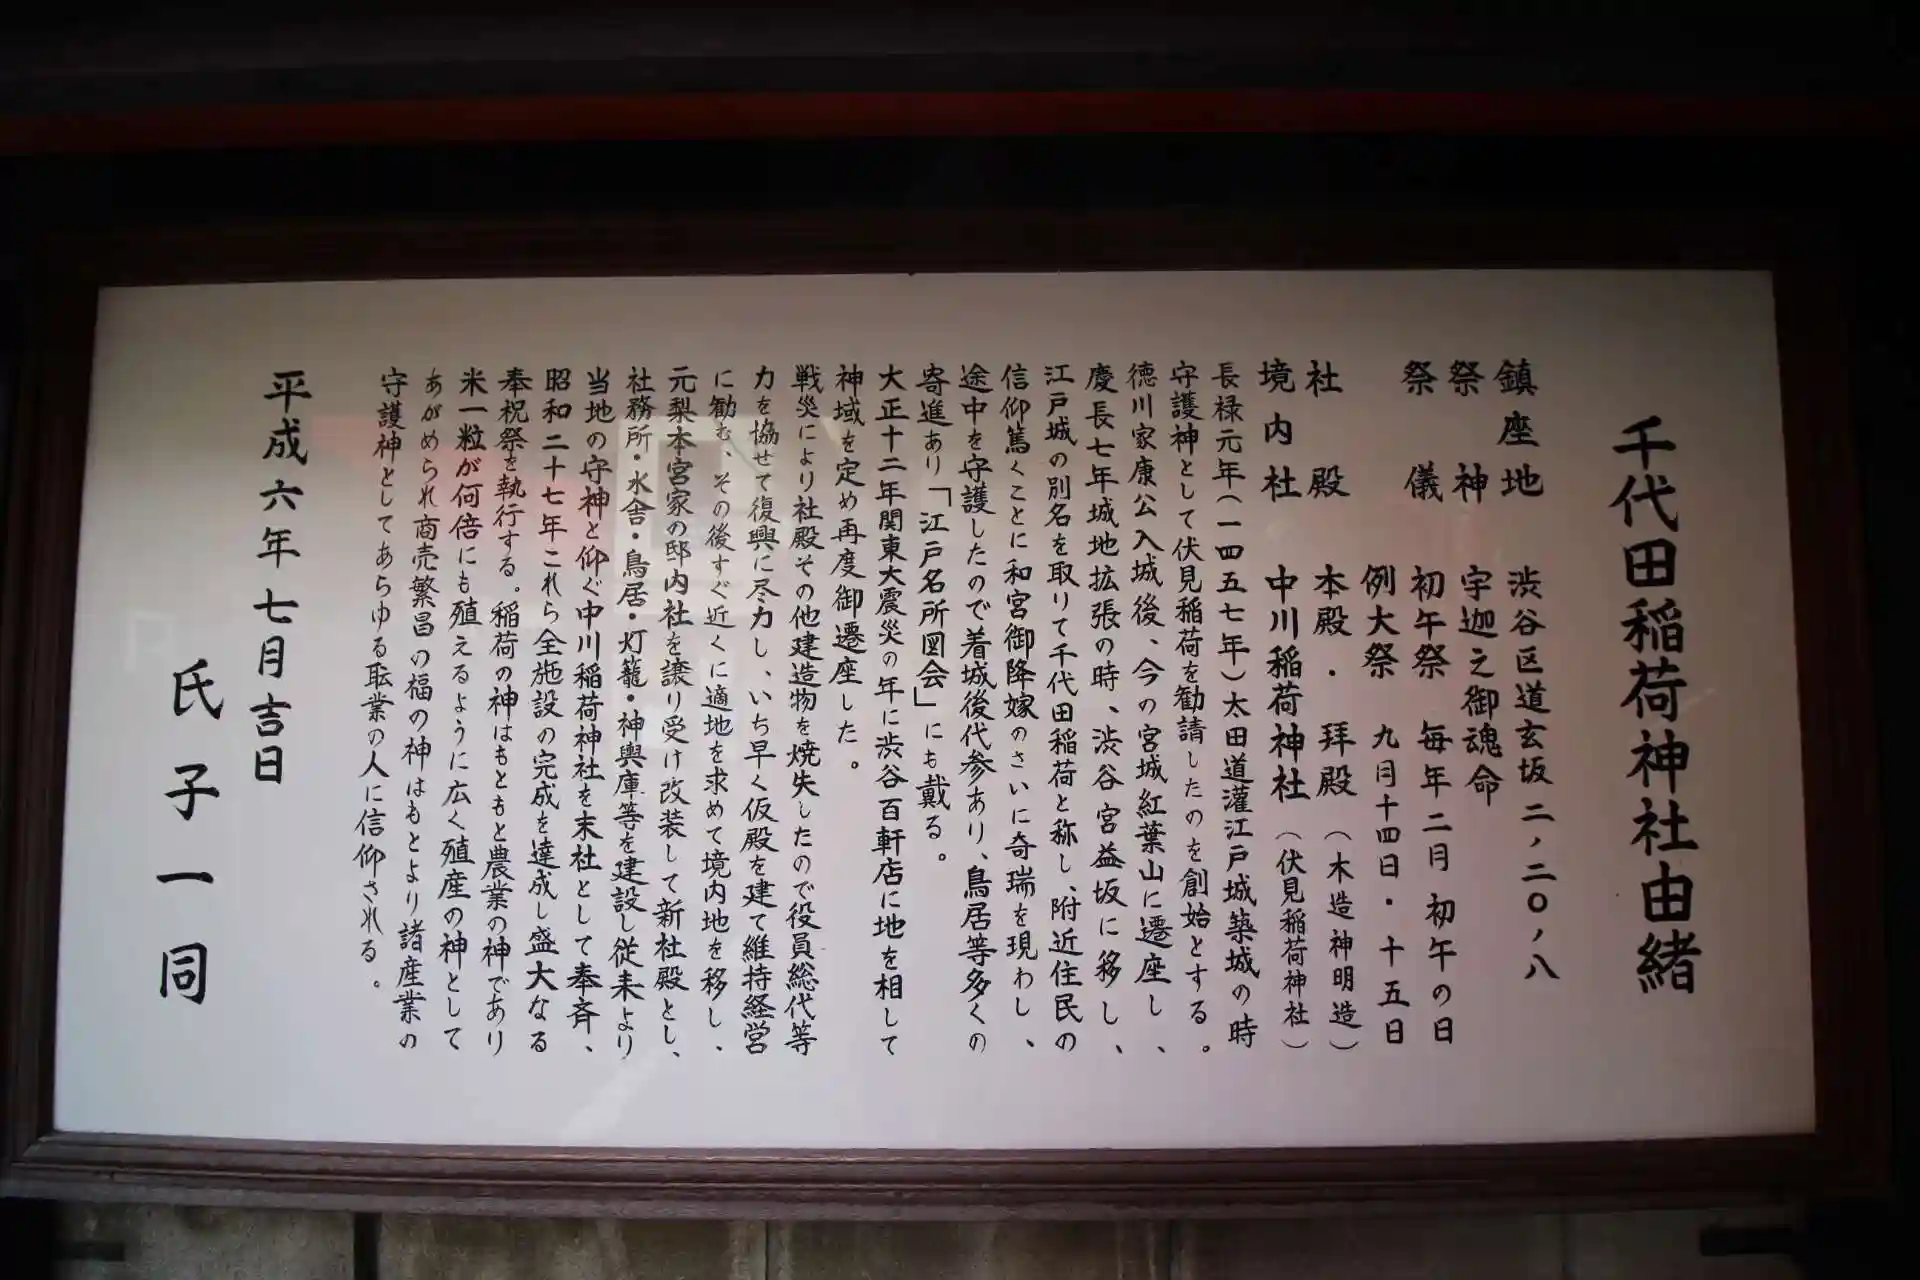 千代田稲荷神社由緒
鎮座地 渋谷区道玄坂二ノ二〇ノ八
祭神 宇迦之御魂命
祭儀 初午祭 毎年二月初午の日
例大祭 九月十四日・十五日
社殿 本殿・拝殿（木造神明造）
境内社 中川稲荷神社（伏見稲荷神社）
長禄元年（一四五七年）太田道灌江戸城築城の時
守護神として伏見稲荷を勧請したのを創始とする。
徳川家康公入城後、今の宮城紅葉山に遷座し、
慶長七年城地拡張の時、渋谷宮益坂に移し、
江戸城の別名を取りて千代田稲荷と称し、附近住民の
信仰篤くことに和宮御降嫁のさいに奇瑞を現わし、
途中を守護したので着城後代参あり、鳥居等多くの
寄進あり「江戸名所図会」にも戴る。
大正十二年関東大震災の年に渋谷百軒店に地を相して
神域を定め再度御遷座した。
戦災により社殿その他建造物を焼失したので役員総代等
力を協せて復興に尽力し、いち早く仮殿を建て維持経営
に勧む、その後すぐ近くに適地を求めて境内地を移し、
元梨本宮家の邸内社を譲り受け改装して新社殿とし、
社務所・水舎・鳥居・灯籠・神輿庫等を建設し従来より
当地の守神と仰ぐ中川稲荷神社を末社として奉斉、
昭和二十七年これら全施設の完成を達成し盛大なる
奉祝祭を執行する。稲荷の神はもともと農業の神であり
米一粒が何倍にも殖えるように広く殖産の神として
あがめられ商売繁昌の福の神はもとより諸産業の
守護神としてあらゆる職業の人に信仰される。
平成六年七月吉日
氏子一同